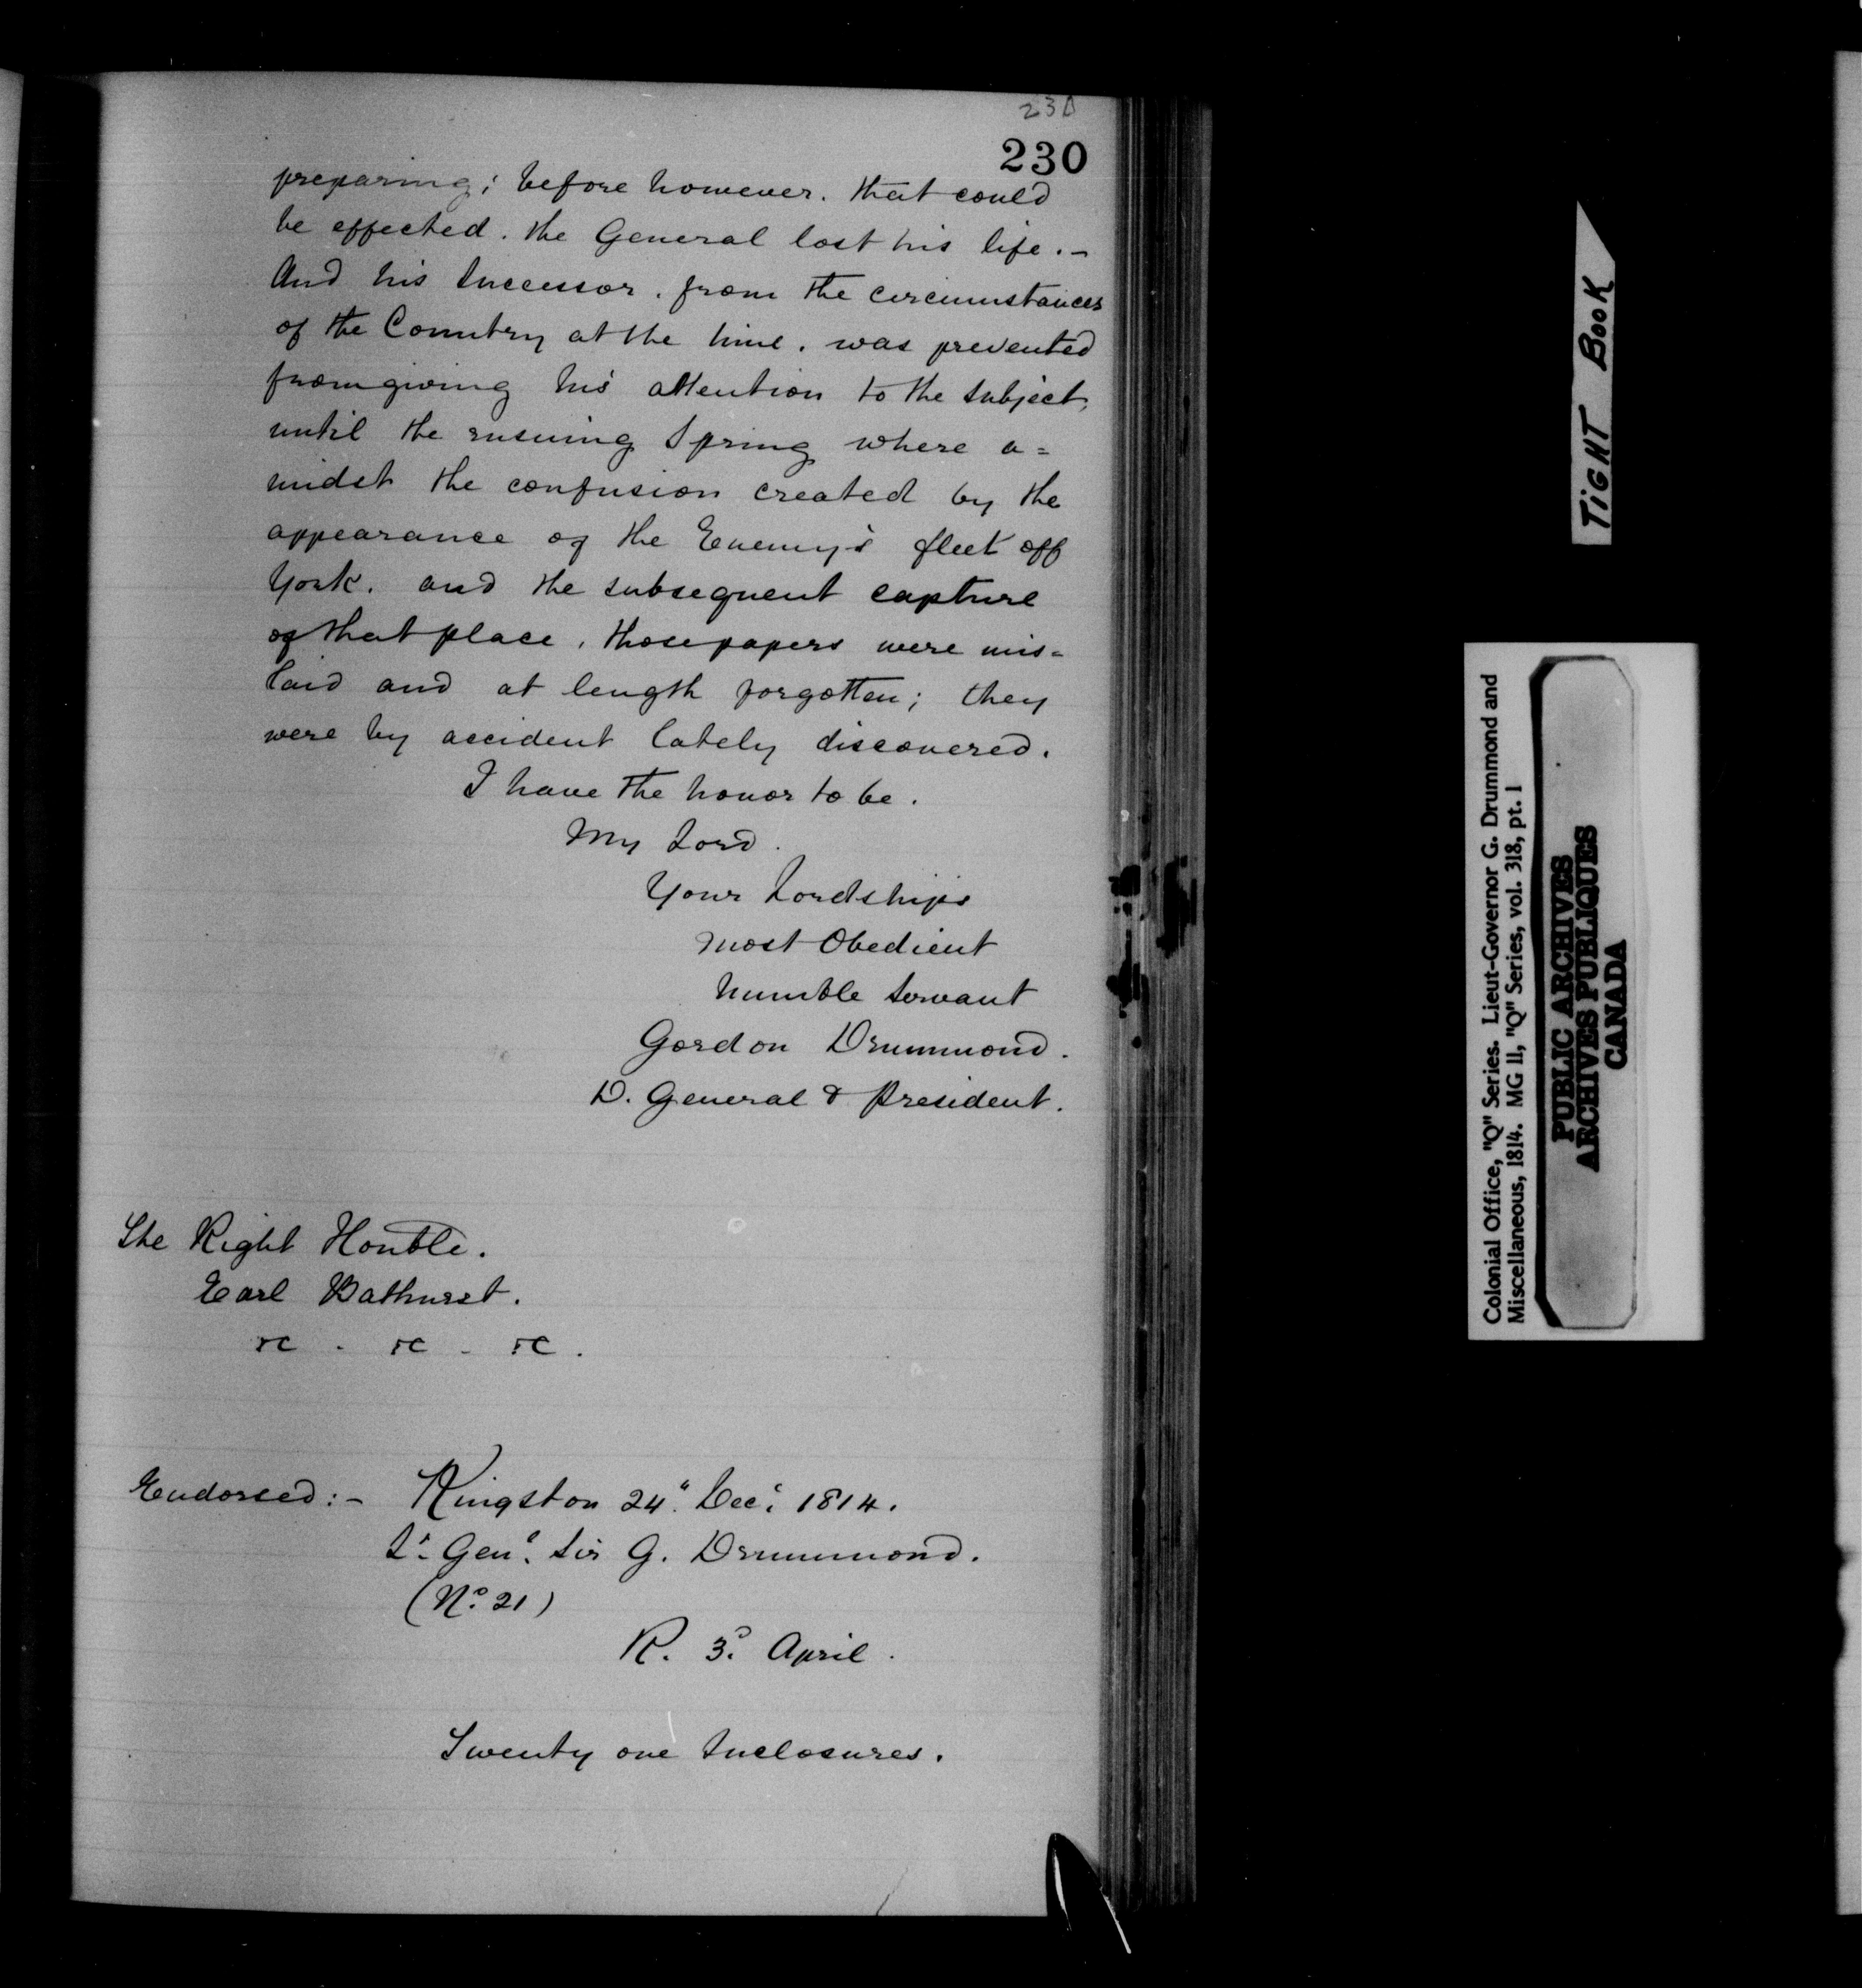 230
230
preparing; before however. that could
be effected. the General lost his life. -
And his Successor. from the circumstances
of the Country at the time. was prevented
from giving his attention to the subject,
until the ensuing Spring where a=
midst the confusion created by the
appearance of the Enemy's fleet off
York. and the subsequent capture
of that place, those papers were mis-
laid and at length forgotten; they
were by accident lately discovered.
I have the honor to be.
My Lord.
Your Lordships
most Obedient
humble Servant
Gordon Drummond.
D. General & President.
The Right Honble.
Earl Bathurst.
&c. &c. &c.
Endorsed: - Kingston 24" Decr 1814.
Lt. Genl. Sir G. Drummond.
(No. 21)
R. 3d. April.
Twenty one Inclosures.
TIGHT BOOK
Colonial Office, "Q" Series. Lieut-Governor G. Drummond and
Miscellaneous, 1814. MG 11, "Q" Series, vol. 318, pt. 1
PUBLIC ARCHIVES
ARCHIVES PUBLIQUES
CANADA